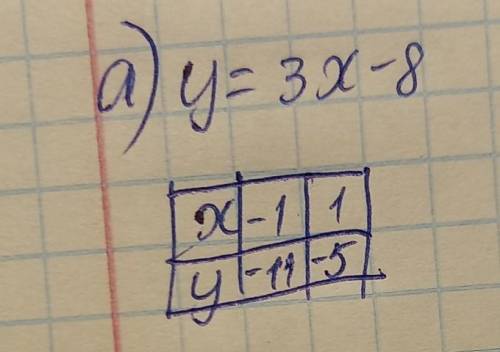 a) y = 3x - 8
x -1 1
y -11 -5